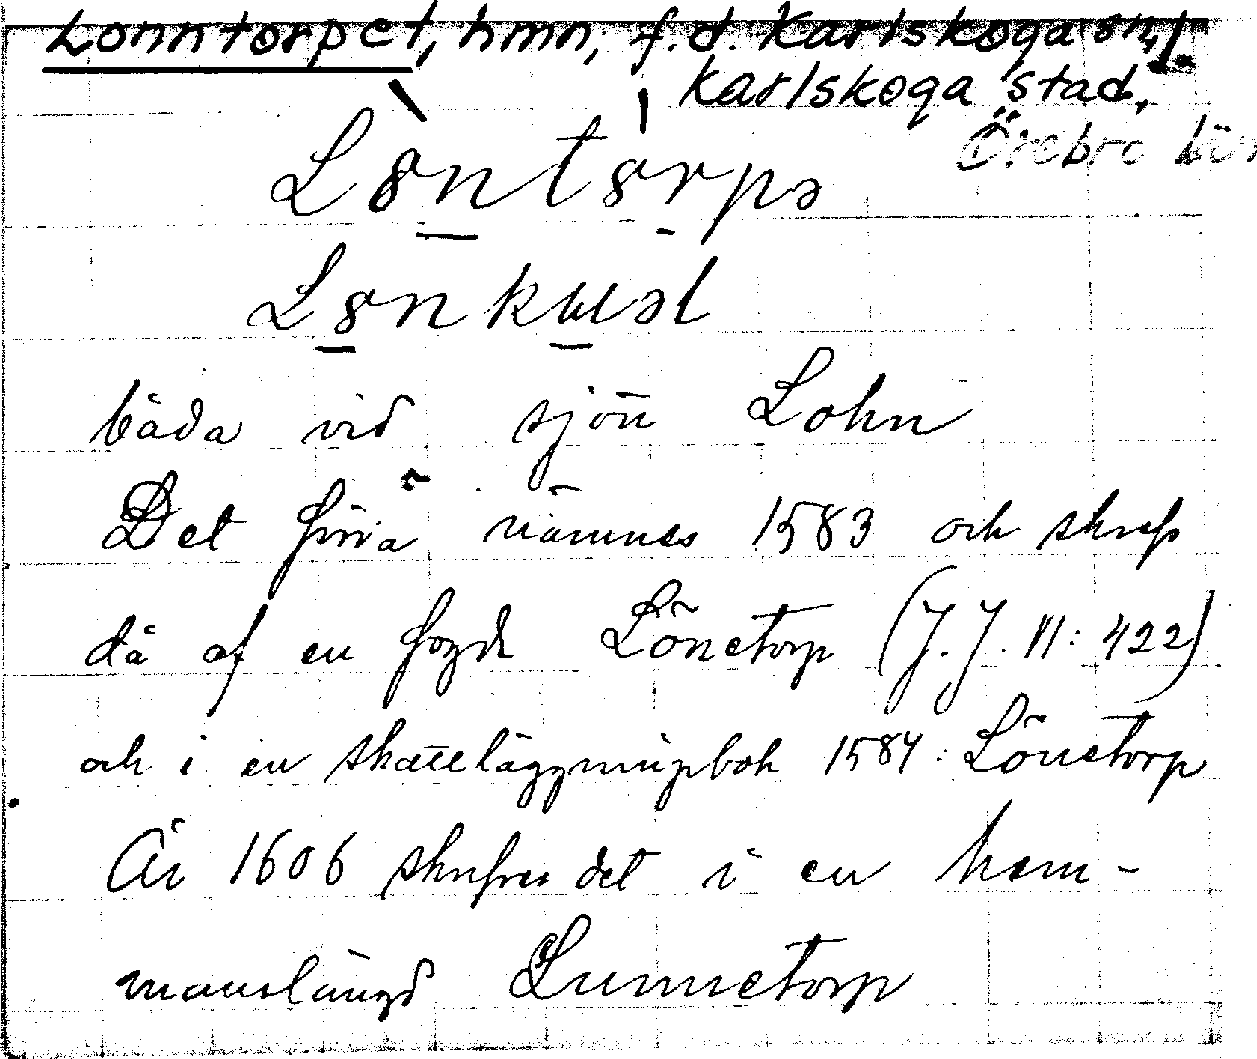 Lonntorpet, hmn, f.d. Karlskoga sn,
Karlskoga stad,
Örebro län
Lȣntȣrpə
Lȣnkɯəl
båda vid sjön Lohn
Det förra nämnes 1583 och skrefs
då af en fogde Lönetorp (J. J. II: 422)
och i en skatteläggningsbok 1584: Lönetorp
År 1606 skrifves det i en hem-
manslängd Lunnetorp